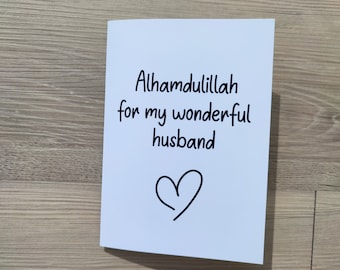 Alhamdulillah
for my wonderful
husband